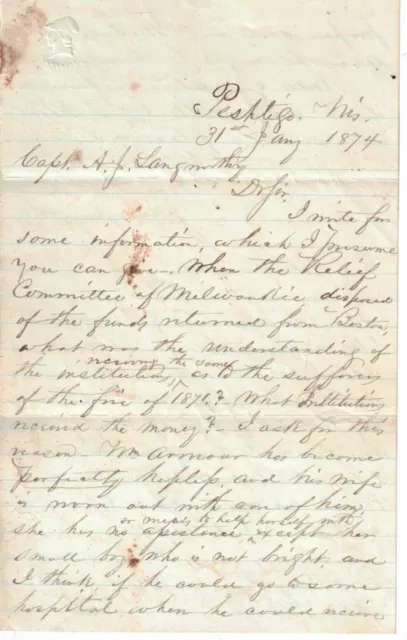 Peshtigo. Wis.
31st Jany 1874
Capt. A. J. Langworthy
Dr Sir.
I write for
some information, which I presume
you can give. When the Relief
Committee of Milwaukie disposed
of the funds returned from Boston
what was the understanding of
receiving the same
the institution, as to the sufferers
of the fire of 1871? What Institutions
received the money? I ask for this
reason Wm Armour has become
perfectly helpless, and his wife
is worn out with care of him,
or means to help herself with
she has no assistance except her
small boy who is not bright and
I think if he could go to some
hospital where he could receive